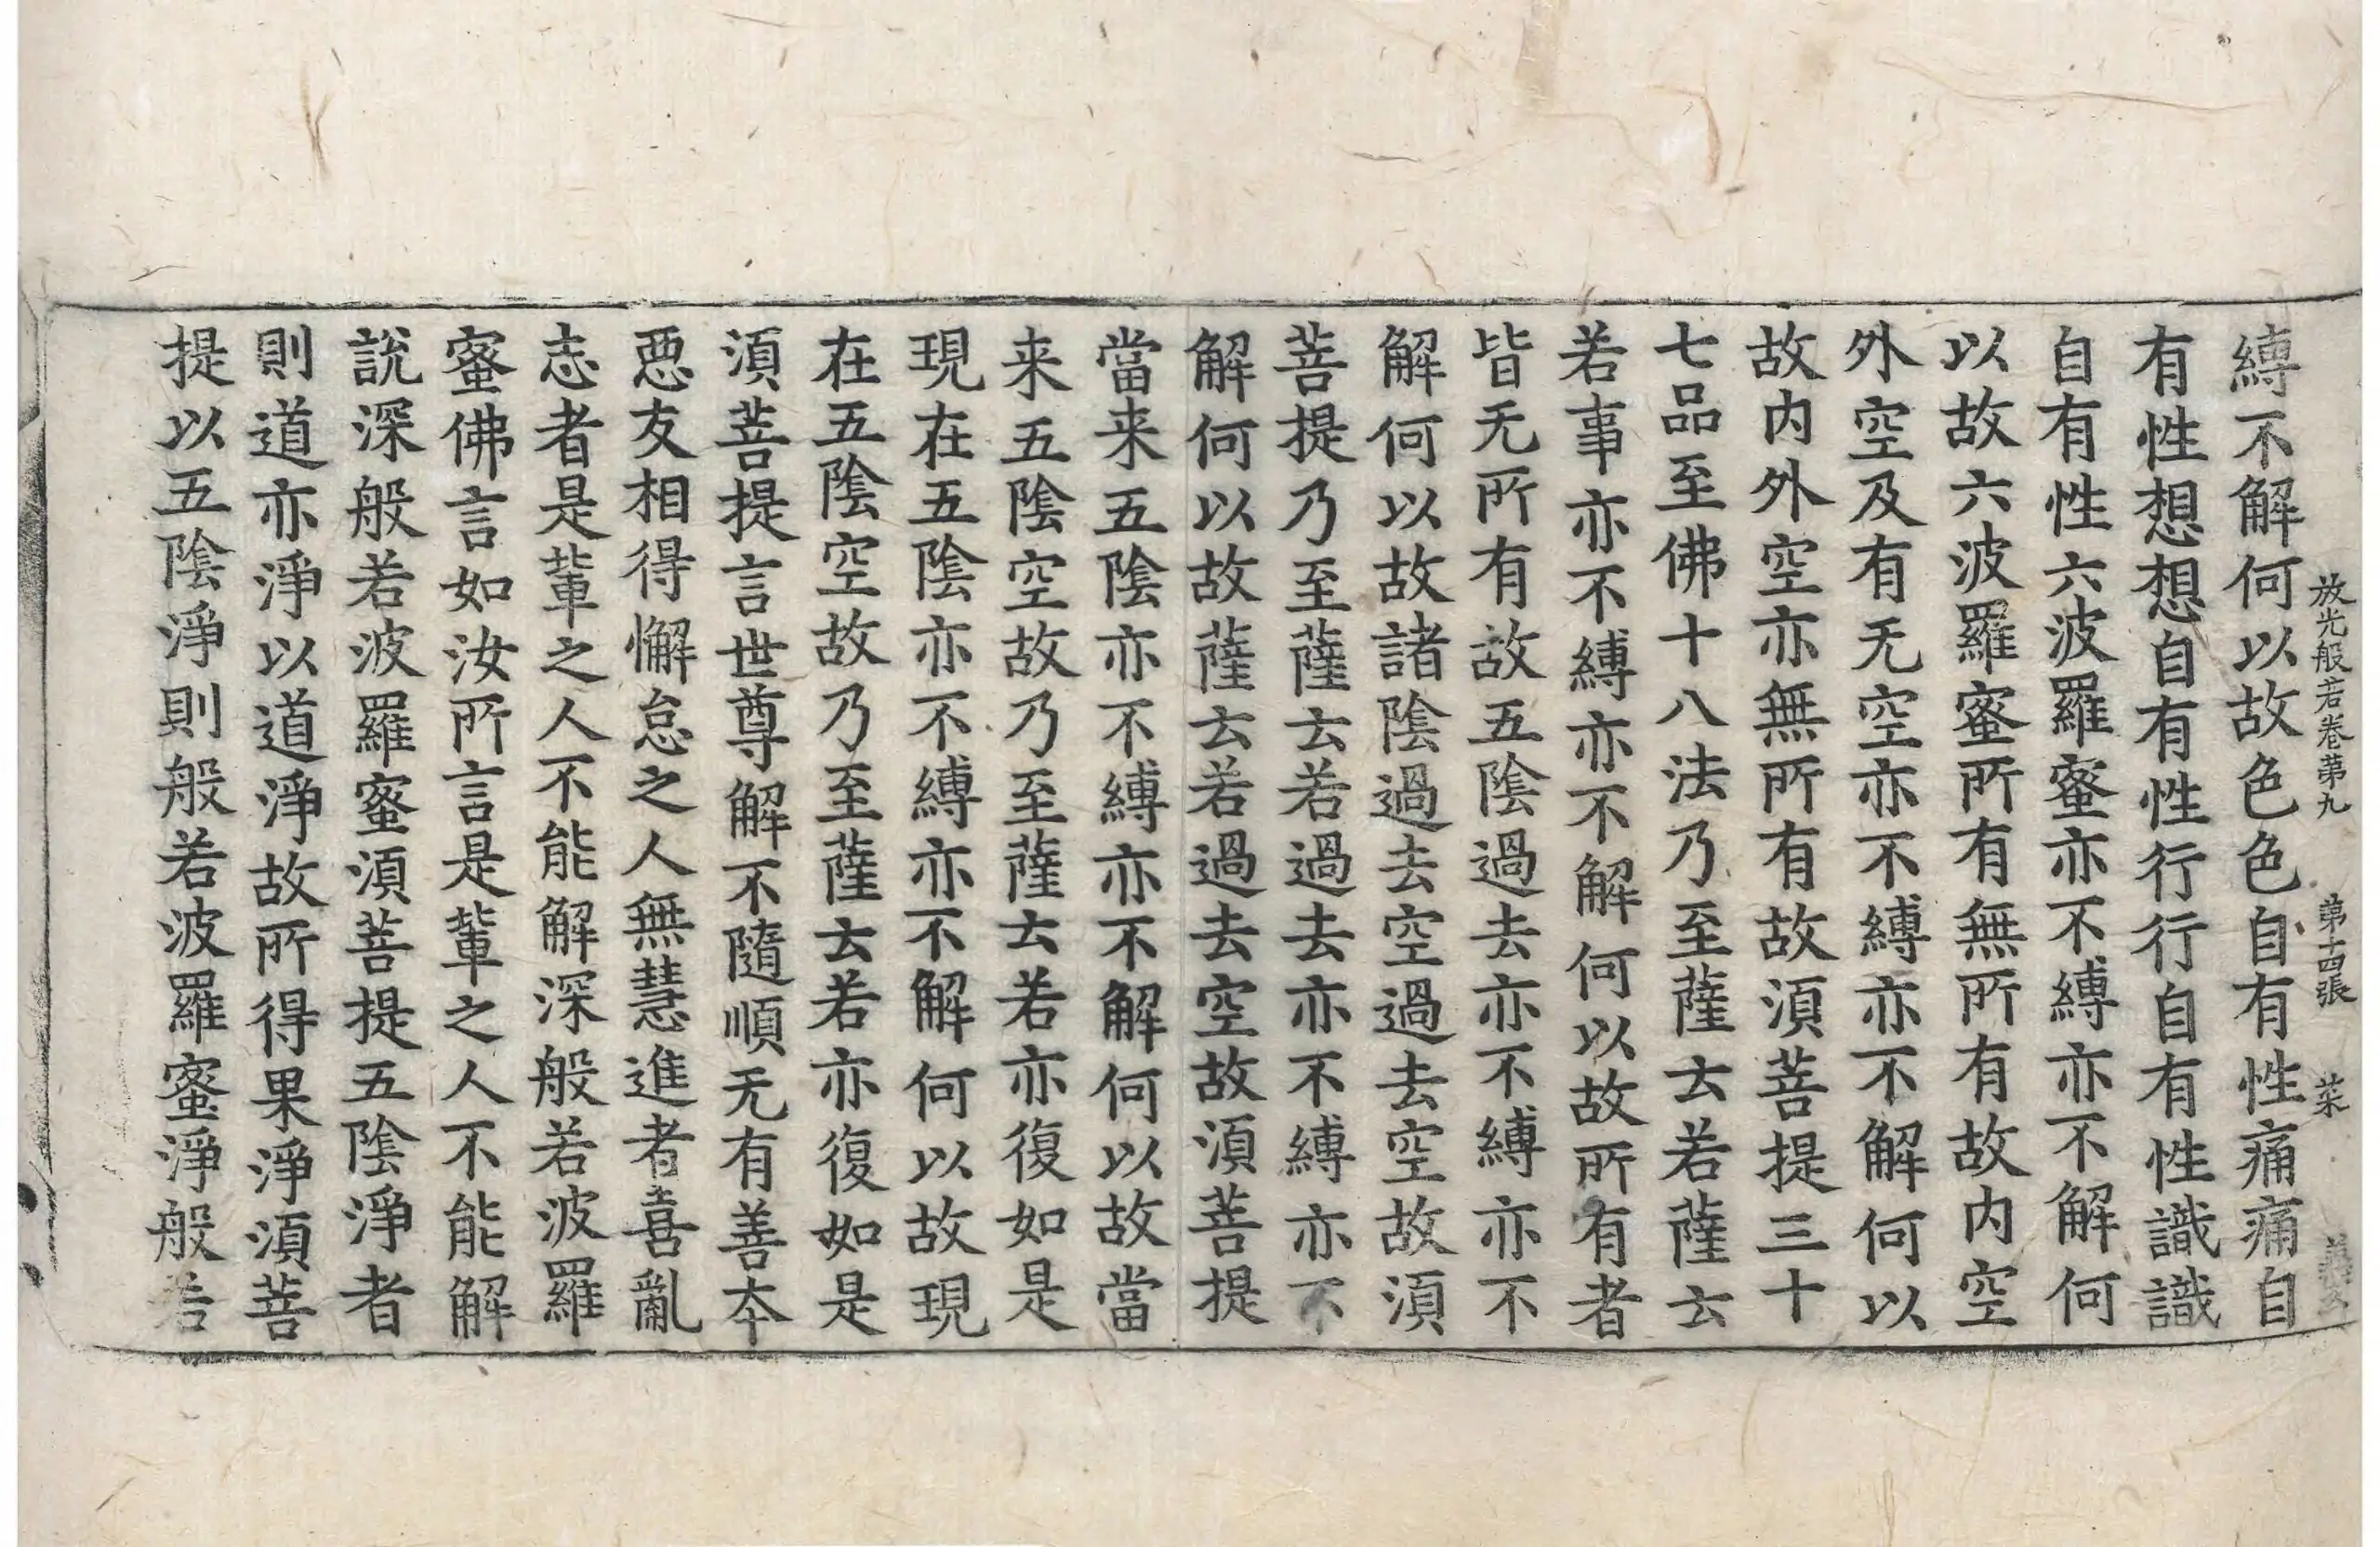 放光般若卷第九 第十四張 菜
縛不解何以故色色自有性痛痛自
有性想想自有性行行自有性識識
自有性六波羅蜜亦不縛亦不解何
以故六波羅蜜所有無所有故内空
外空及有无空亦不縛亦不解何以
故内外空亦無所有故須菩提三十
七品至佛十八法乃至薩云若薩云
若事亦不縛亦不解何以故所有者
皆无所有故五陰過去亦不縛亦不
解何以故諸陰過去空過去空故須
菩提乃至薩云若過去亦不縛亦不
解何以故薩云若過去空故須菩提
當来五陰亦不縛亦不解何以故當
来五陰空故乃至薩云若亦復如是
現在五陰亦不縛亦不解何以故現
在五陰空故乃至薩云若亦復如是
須菩提言世尊解不隨順无有善夲
惡友相得懈怠之人無慧進者喜亂
志者是軰之人不能解深般若波羅
蜜佛言如汝所言是軰之人不能解
說深般若波羅蜜須菩提五陰淨者
則道亦淨以道淨故所得果淨須菩
提以五陰淨則般若波羅蜜淨般若